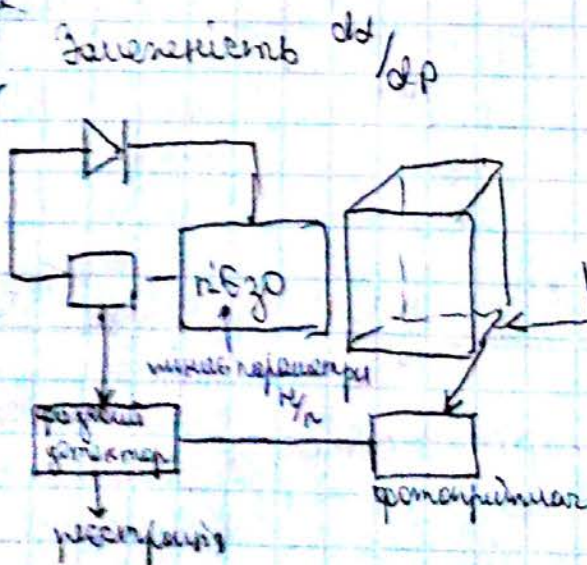 Залежність dα/dp
п'єзо
міняє параметри
н/п
фазний
детектор
фотоприймач
реєстрація